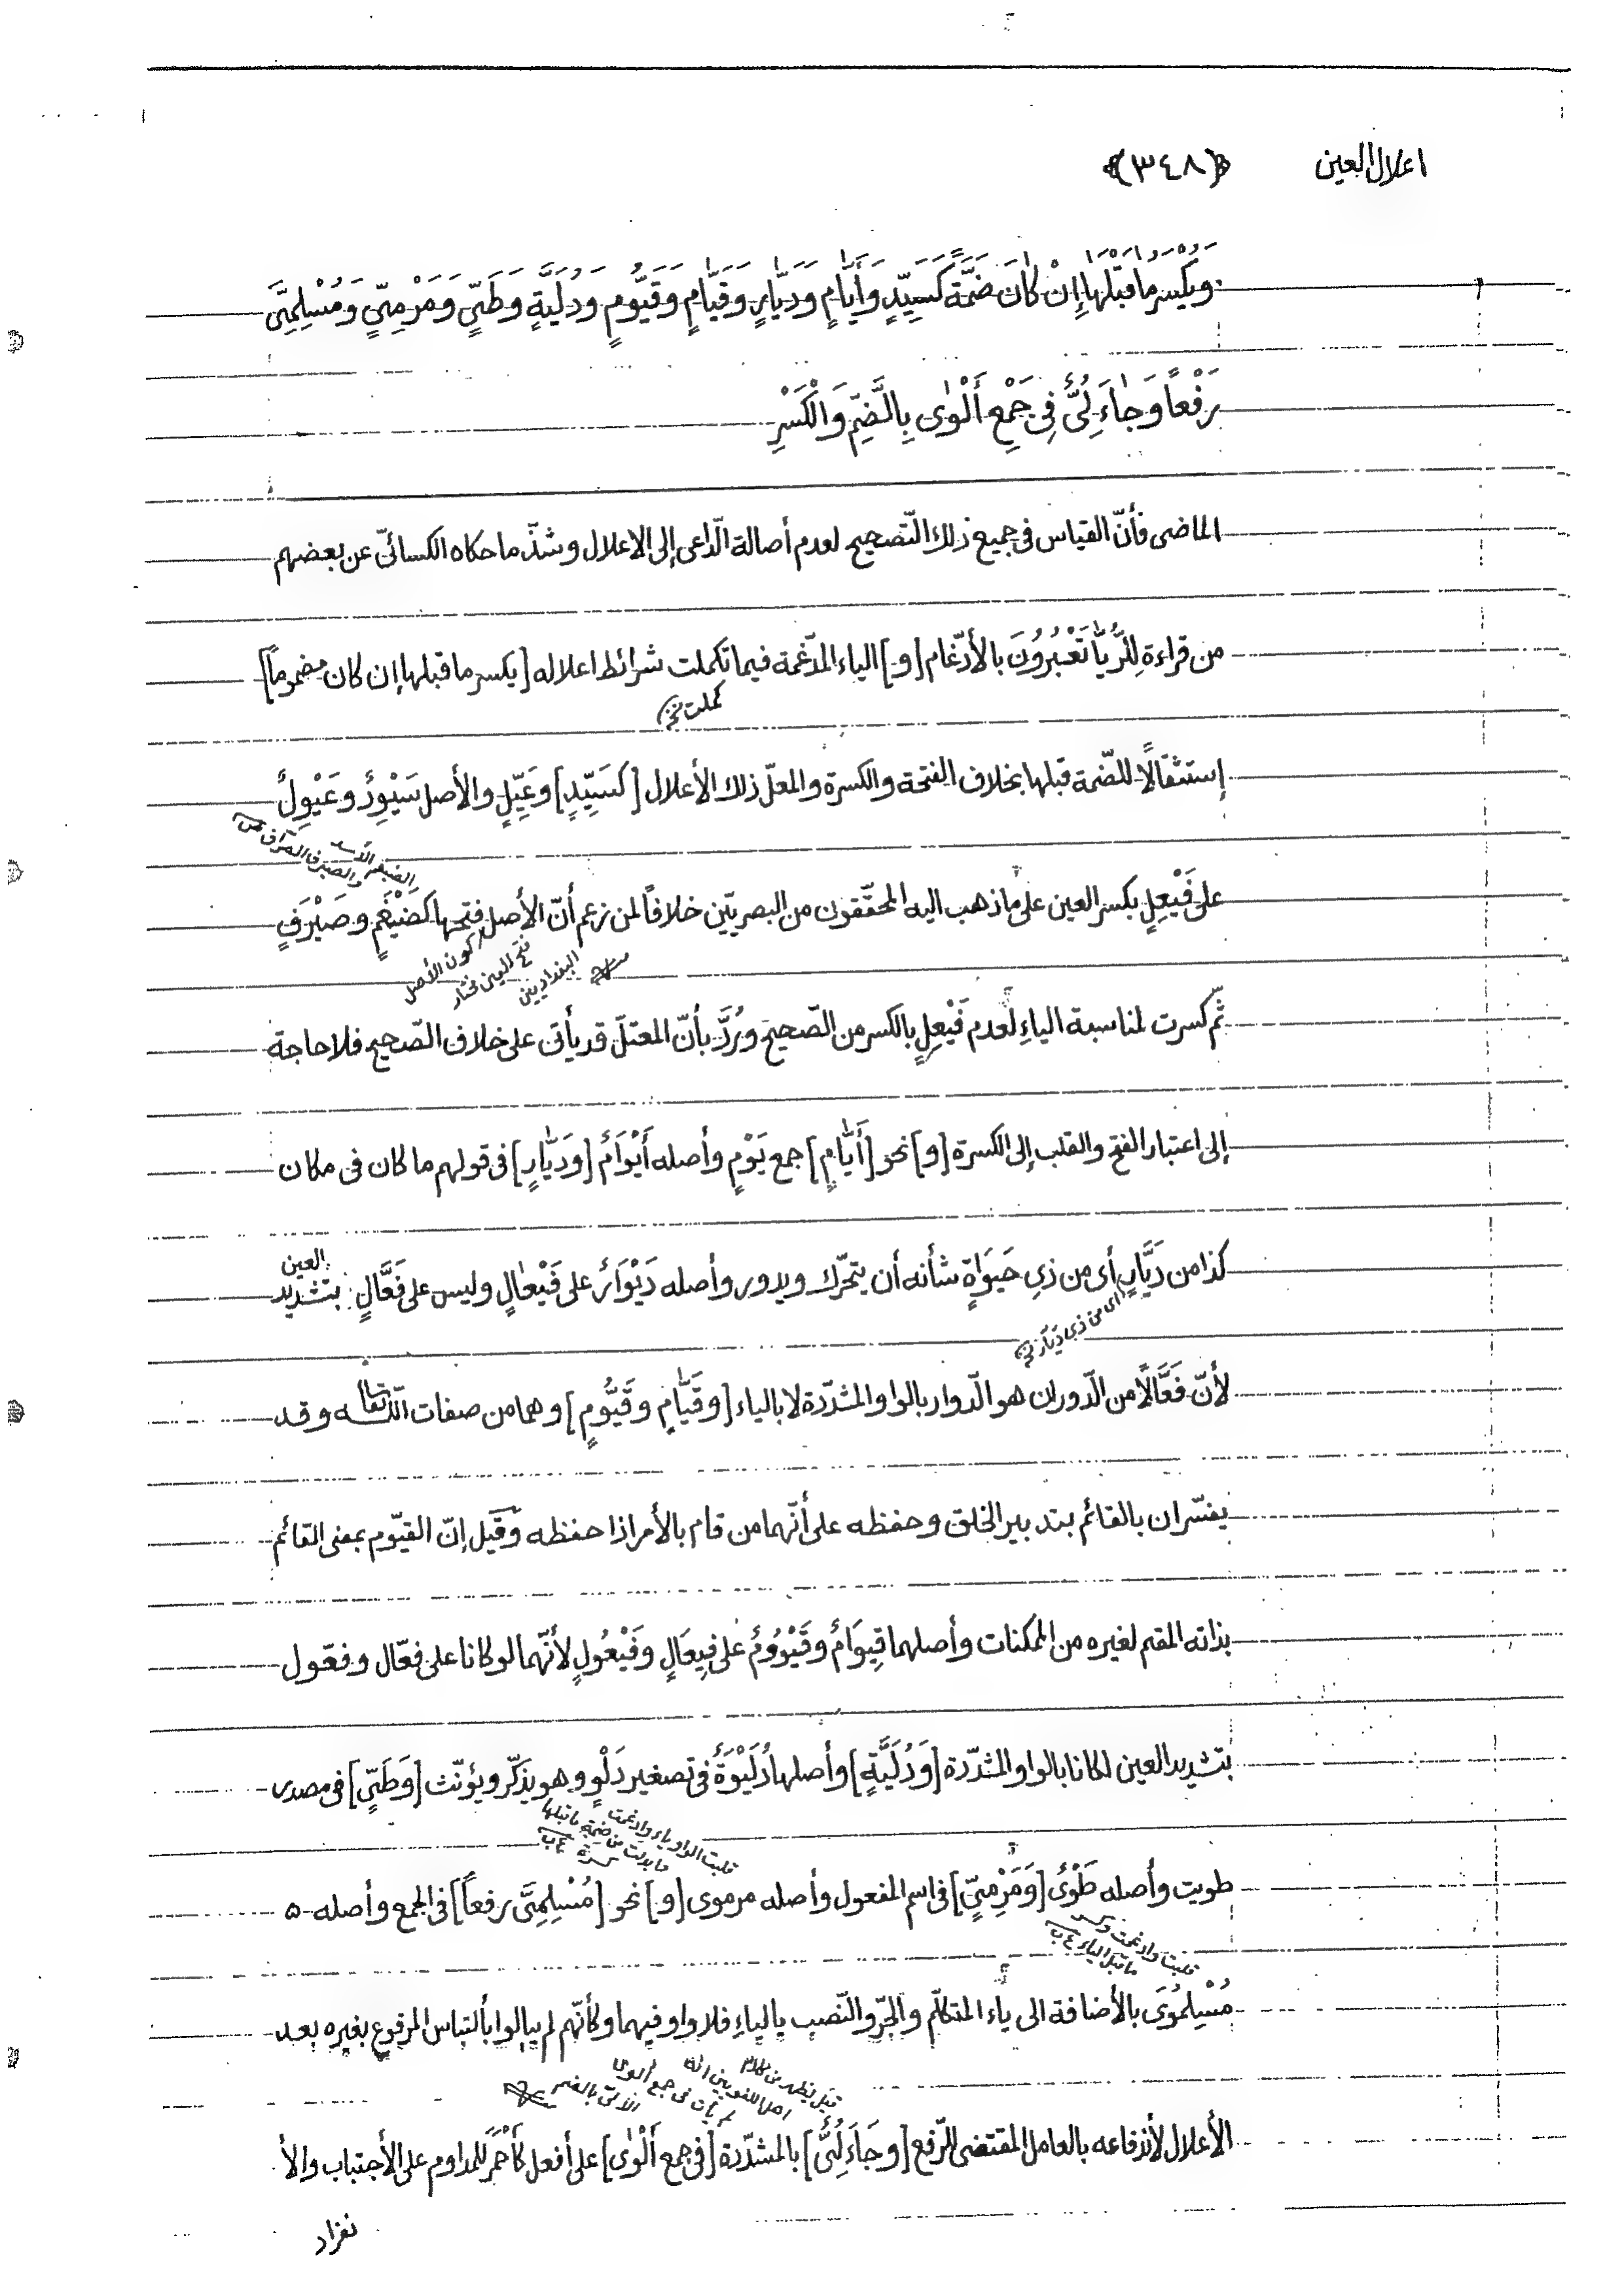 اعلال العين ﴿٣٤٨﴾
وَيُكْسَرُ مٰا قَبْلَهٰا إِنْ كٰانَ ضَمَّةً كَسَيِّدٍ وَأَيّٰامٍ وَدَيّٰارٍ وَقَيّٰامٍ وَقَيُّومٍ وَدُلَيَّةٍ وَطَيٍّ وَمَرْمِيٍّ وَمُسْلِمِيَّ
رَفْعاً وَجٰاءَ لُِيٌّ فِي جَمْعِ أَلْوٰى بِالضَّمِّ وَالْكَسْرِ
الماضى فأنّ القياس فى جميع ذلك التّصحيح لعدم أصالة الّداعى إلى الاعلال وشذّ ما حكاه الكسائىّ عن بعضهم
من قراءة لِلرُّيّٰا تَعْبُرُونَ بالأدّغام [و] الياء المدّغمة فيما تكملت شرائط اعلاله [يكسر ما قبلها إن كان مضموماً]
كملت نخ
إستثقالًا للضّمة قبلها بخلاف الفتحة والكسرة والمعلّ ذلك الأعلال [كسَيِّدٍ] وعَيِّلٍ والأصل سَيْوِدٌ وعَيْوِلٌ
الضيغم الأسد
والصيرف الصرّاف
على فَيْعِلٍ بكسر العين على ما ذهب اليه المحقّقون من البصريّين خلافاً لمن زعم أنّ الأصل فتحها كضَيْغَمٍ وصَيْرَفٍ
كون الأصل
فتح العين مختار
البغداديين
ثمّ كسرت لمناسبة الياءِ لعدم فَيْعِلٍ بالكسر من الصّحيح ورُدَّ بأنّ المعتلّ قد يأتى على خلاف الصّحيح فلا حاجة
إلى اعتبار الفتح والقلب إلى الكسرة [و] نحو [أَيّٰامٍ] جمع يَوْمٍ وأصله أَيْوَامٌ [وَدَيّٰارٍ] فى قولهم ما كان فى مكان
كذا من دَيَّارٍ أى من ذىِ حَيَوَاةٍ شأنه أن يتحرّك ويدور وأصله دَيْوَارٌ على فَيْعٰالٍ وليس على فَعَّالٍ بتشديد العين
اى من ذى ديّار نخ
لأنّ فَعَّالًا من الّدوران هو الّدوار بالواو المشدّدة لا بالياء [وقَيّٰامٍ وقَيُّومٍ] وهما من صفات اللّه تعا وقد
يفسّران بالقائم بتدبير الخلق وحفظه على أنّهما من قام بالأمر اذا حفظه وَقيل إنّ القيّوم بمعنى القائم
بذاته المقم لغيره من الممكنات وأصلهما قِيوَامٌ وقَيْوُومٌ على فِيعَالٍ وفَيْعُولٍ لأنّهما لو كانا على فعّال وفعّول
بتشديد العين لكانا بالواو المشدّدة [وَدُلَيَّةٍ] وأصلها دُلَيْوَةٌ فى تصغير دَلْوٍ وهو يذكّر ويؤنّث [وَطَيٍّ] فى مصدر
قلبت الواو ياء وادغمت
وابدلت من ضمة ما قبلها
كسرة
طويت وأصله طَوْىٌ [وَمَرْمِيٍّ] فى اسم المفعول وأصله مرموى [و] نحو [مُسْلِمِيَّ رفعاً] فى الجمع وأصله
قلبت وادغمت وكسر
ما قبل الياء
مُسْلِمُوىَ بالأضافة الى ياء المتكلّم والجرّ والنّصب بالياءِ فلا واو فيهما وكأنّهم لم يبالوا بألتباس المرفوع بغيره بعد
قيل يظهر من كلام
اهل اللغويين انه
لم يأت فى جمع ألوى
الأ لىّ بالضم
الأعلال لأندفاعه بالعامل المقتضى للّرفع [وجَاءَ لُِيٌّ] بالمشدّدة [فى جمع أَلْوٰى] على أفعل كأَحْمَر للمداوم على الأجتباب والأ
نفراد